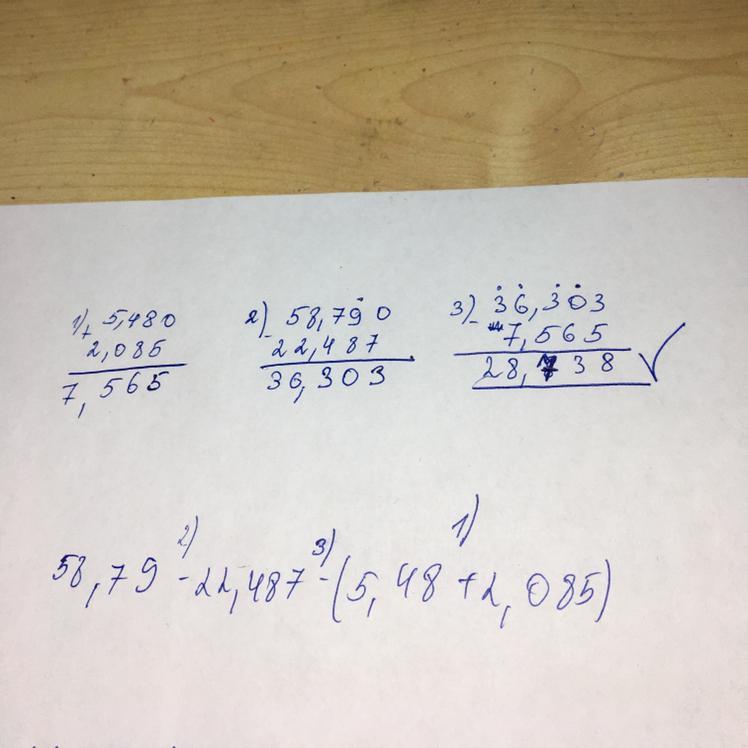 1) + 5,480 2) - 58,790 3) - 36,303
2,085 22,487 7,565
7,565 36,303 28,738
2) 3) 1)
58,79 - 22,487 - (5,48 + 2,085)